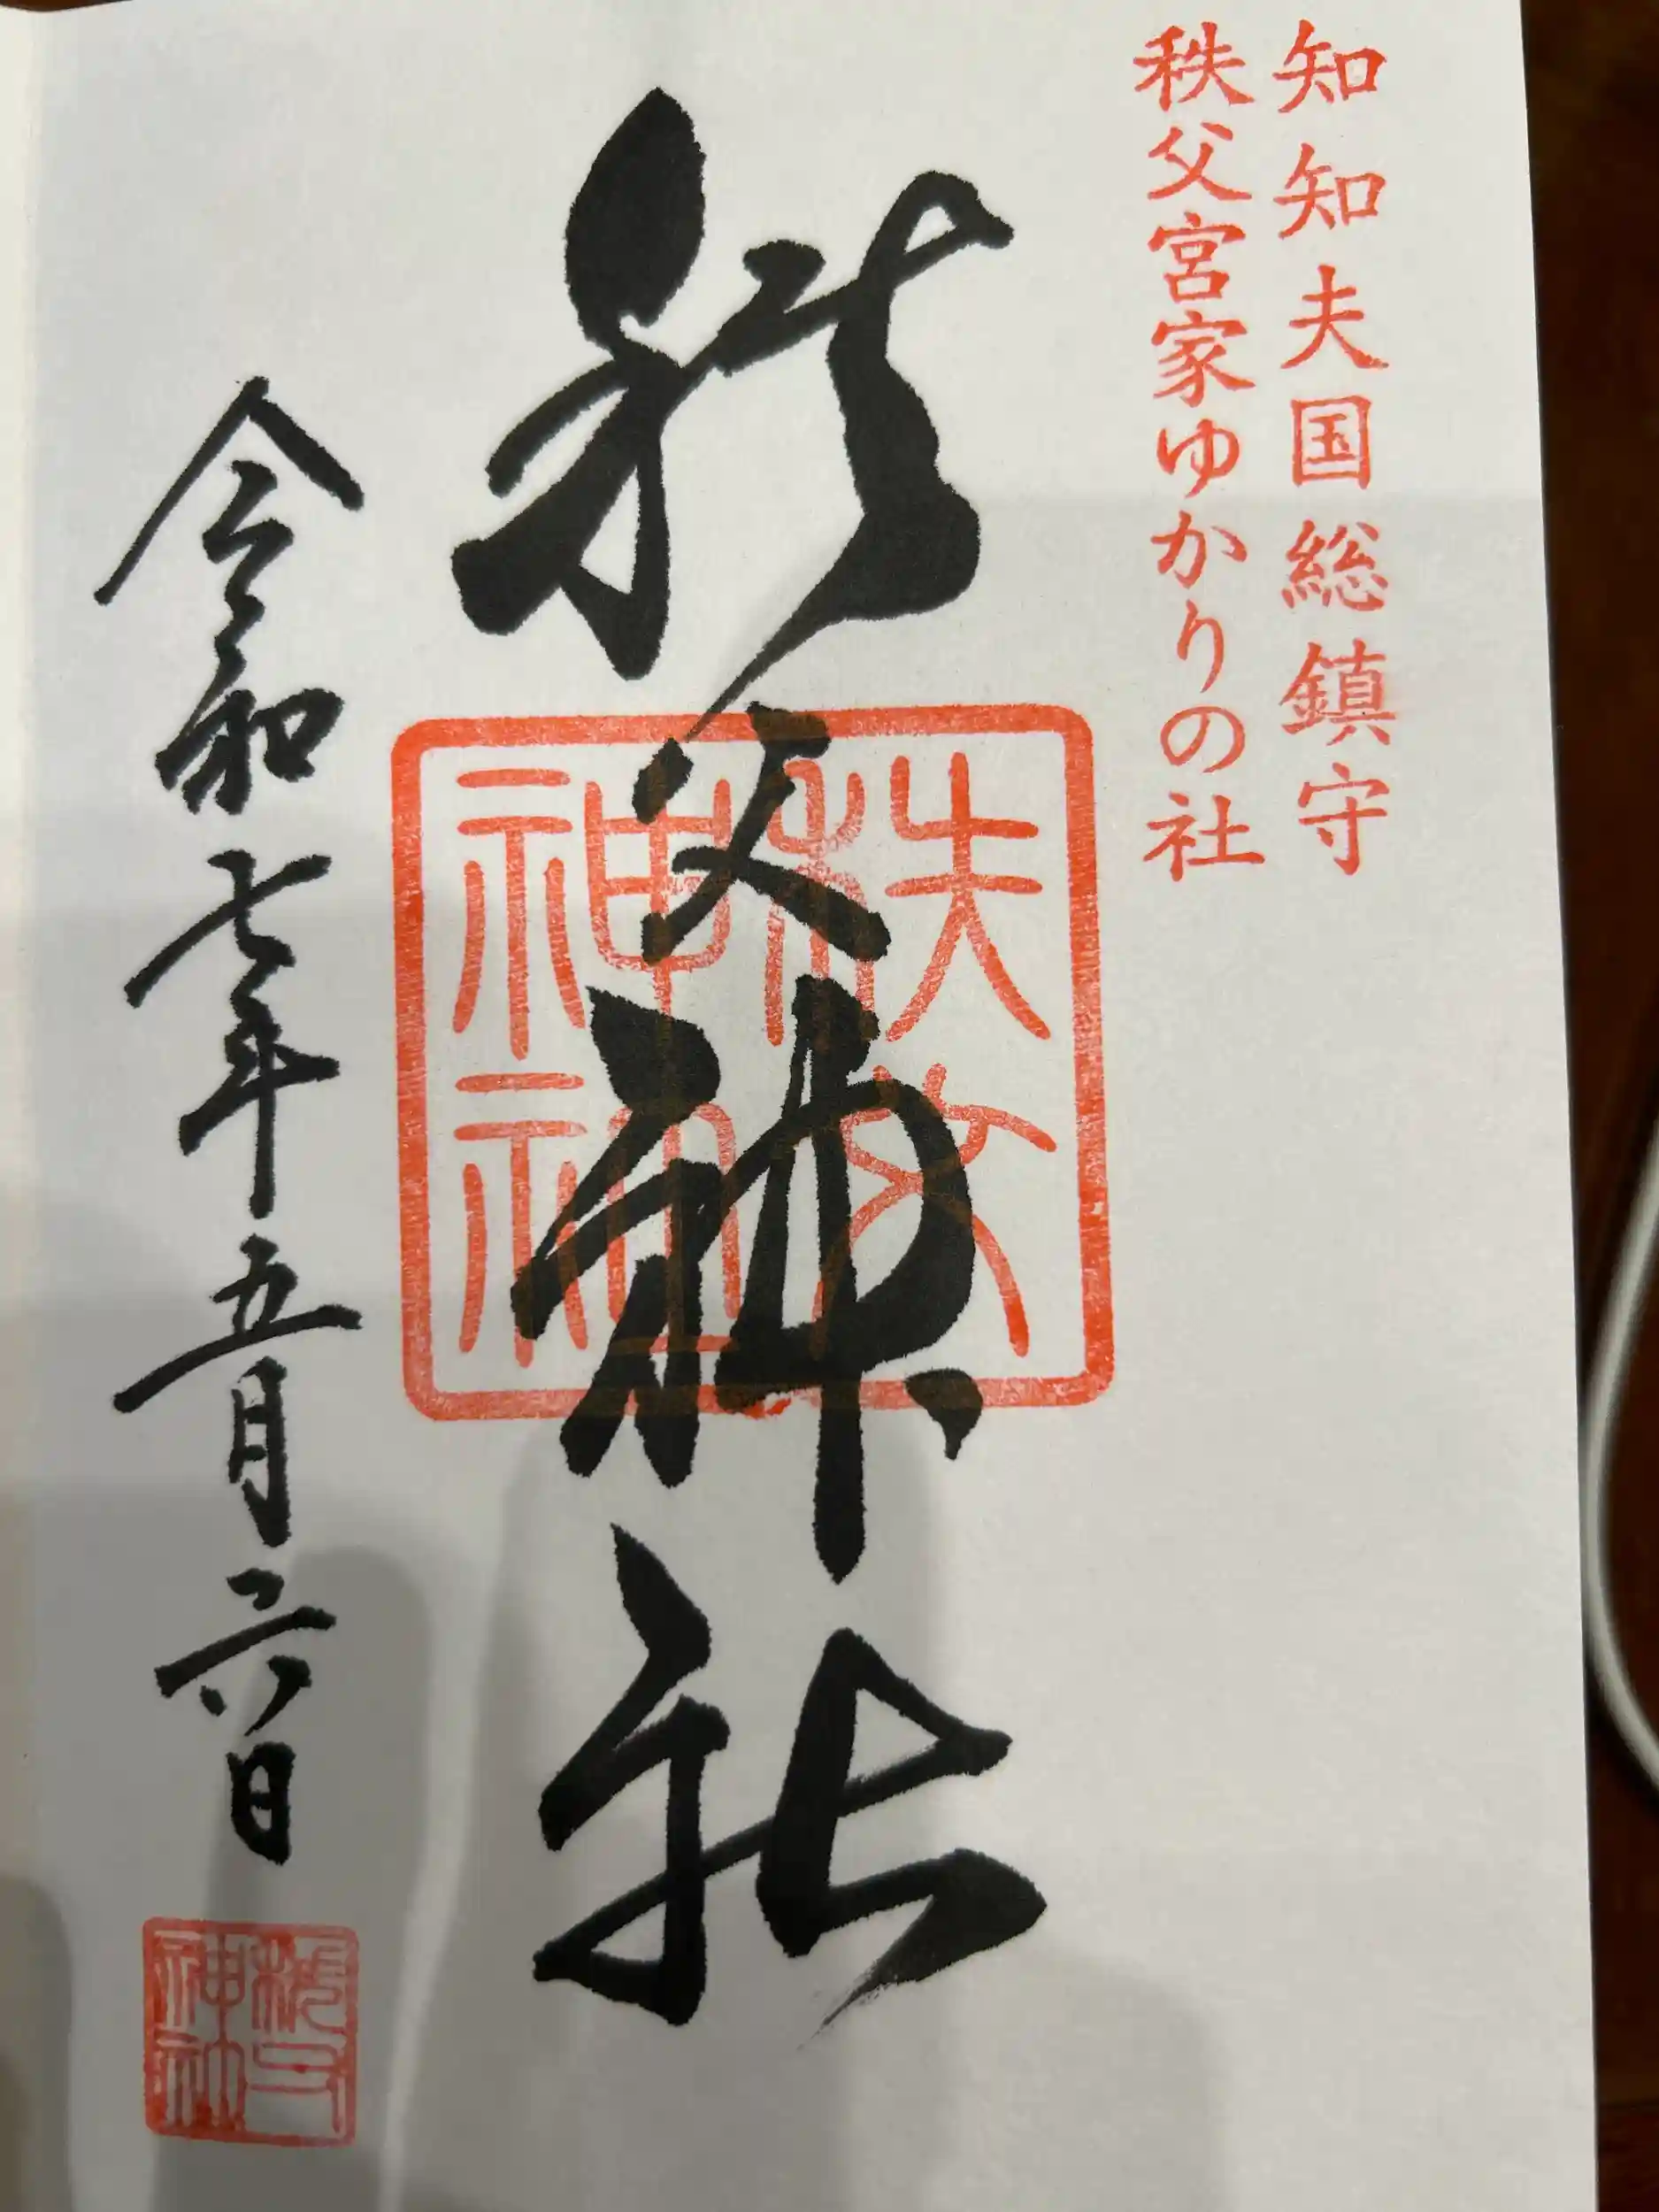 知知夫国総鎮守
秩父宮家ゆかりの社
秩父神社
秩父神社
令和七年五月六日